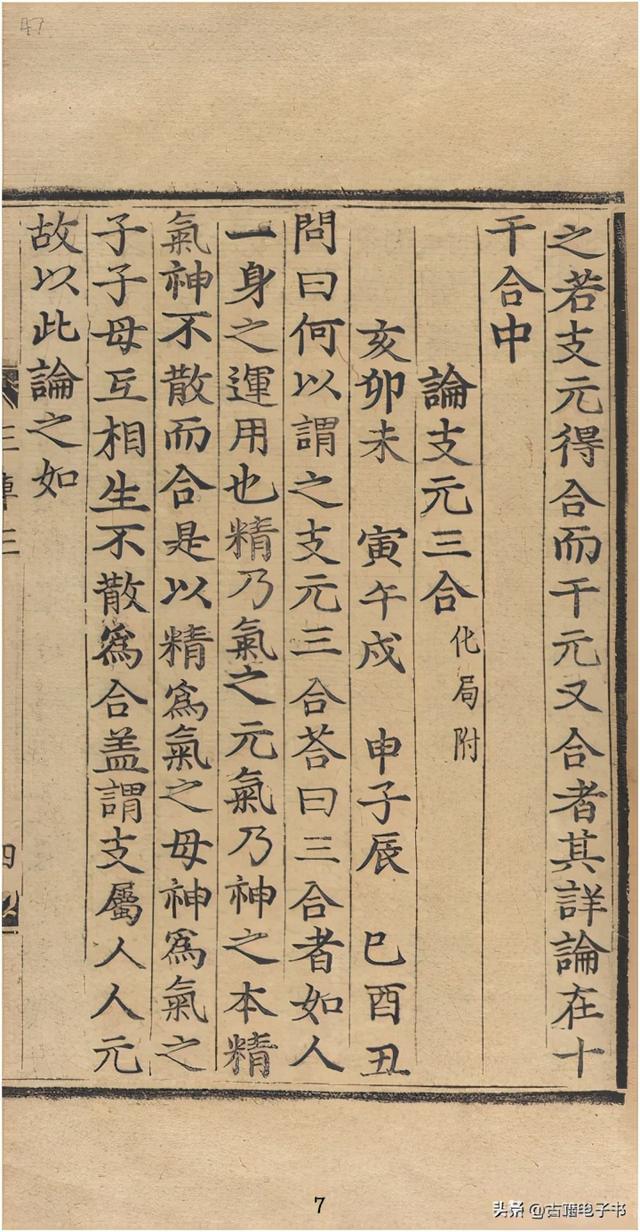 47
之若支元得合而干元又合者其詳論在十
干合中
論支元三合化局附
亥卯未 寅午戌 申子辰 巳酉丑
問曰何以謂之支元三合荅曰三合者如人
一身之運用也精乃氣之元氣乃神之本精
氣神不散而合是以精爲氣之母神爲氣之
子子母互相生不散爲合盖謂支屬人人元
故以此論之如
四
7
头条 @古籍电子书